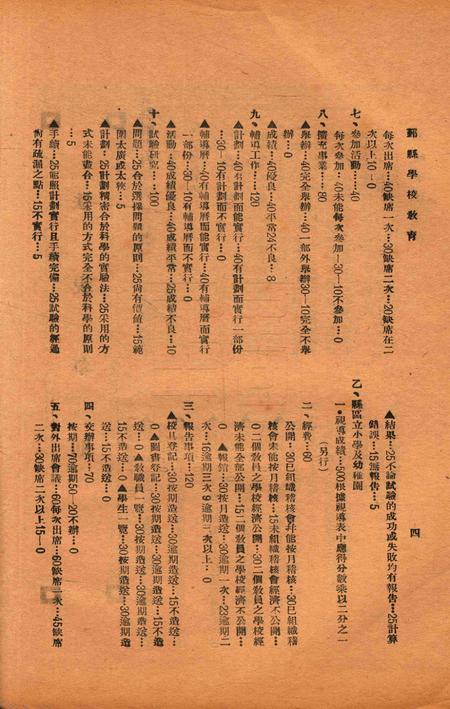 鄞縣學校敎育
四
每次出席…40缺席一次…30缺席二次…20缺席在二
次以上10—0
七、參加活動……40
每次參加…40未能每次參加—30—10不參加…0
八、擴充事業…80
▲舉辦…40完全舉辦…40一部外舉辦30—10完全不舉
辦…0
▲成績…40優良…40平常24不良…8
九、輔導工作……120
▲計劃…40有計劃而能實行…40有計劃而實行一部份
…30—10有計劃而不實行…0
▲輔導曆…40有輔導曆而能實行…40有輔導曆而實行
一部份…30—10有輔導曆而不實行…0
▲活動…40成績優良…40成績平常…25成績不良…10
十、試驗研究……100
▲問題…25合於選擇問題的原則…25尙有價値…15範
圍太廣或太狹…5
▲計劃…25計劃精密合於科學的實驗法…25采用的方
式未能盡合…15采用的方式完全不合於科學的原則
…5
▲手續…25能照計劃實行且手續完備…25試驗的經過
尙有疏漏之點…15不實行…5
▲結果…25不論試驗的成功或失敗均有報告…25計算
錯誤…15無報告…5
乙、縣區立小學及幼稚園
一、視導成績…500根據視導表中應得分數乘以二分之一
（另行）
二、經費…60
公開…30已組織稽核會幷能按月稽核…30已組織稽
核會未能按月稽核…15未組織稽核會經濟不公開…
0二個敎員之學校經濟公開…30二個敎員之學校經
濟未能全部公開…15二個敎員之學校經濟不公開…
0▲報銷…30按月造送…30逾期一次…23逾期二
次…16逾期三次9逾期三次以上…0
三、報告事項…120
▲校具登記…30按期造送…30逾期造送…15不造送…
0▲圖書登記…30按期造送…30逾期造送…15不造
送…0▲敎職員一覽…30按期造送…30逾期造送…
15不造送…0▲學生一覽…30按期造送…30逾期造
送…15不造送…0
四、交辦事項…70
按期…70逾期50—20不辦…0
五、對外出席會議…60每次出席…60缺席一次…45缺席
二次…30缺席二次以上15—0